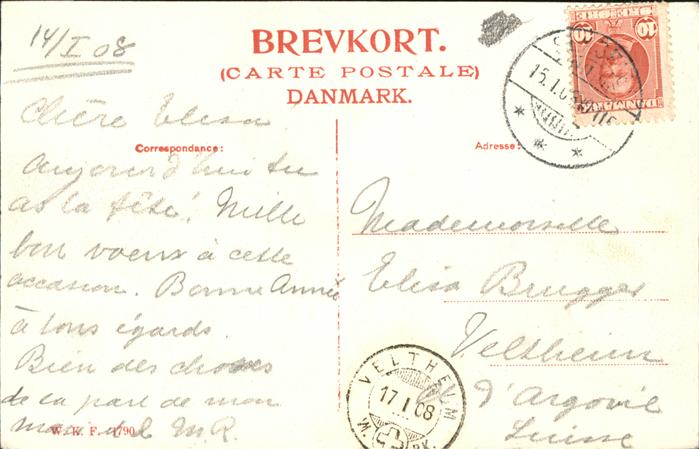 14/I 08
BREVKORT.
(CARTE POSTALE)
DANMARK.
Correspondance:
Adresse:
Chère Elisa
Aujourd'hui tu
as la fête! Mille
bon voeux à cette
occasion. Bonne Année
à tous égards.
Bien des choses
de la part de mon
M.R.
W. K. F. 1790
Mademoiselle
Elisa Brugger
Veltheim
d'Argovie
Suisse
15.1.0
VELTHEIM
17.I.08
10 10
DANMARK